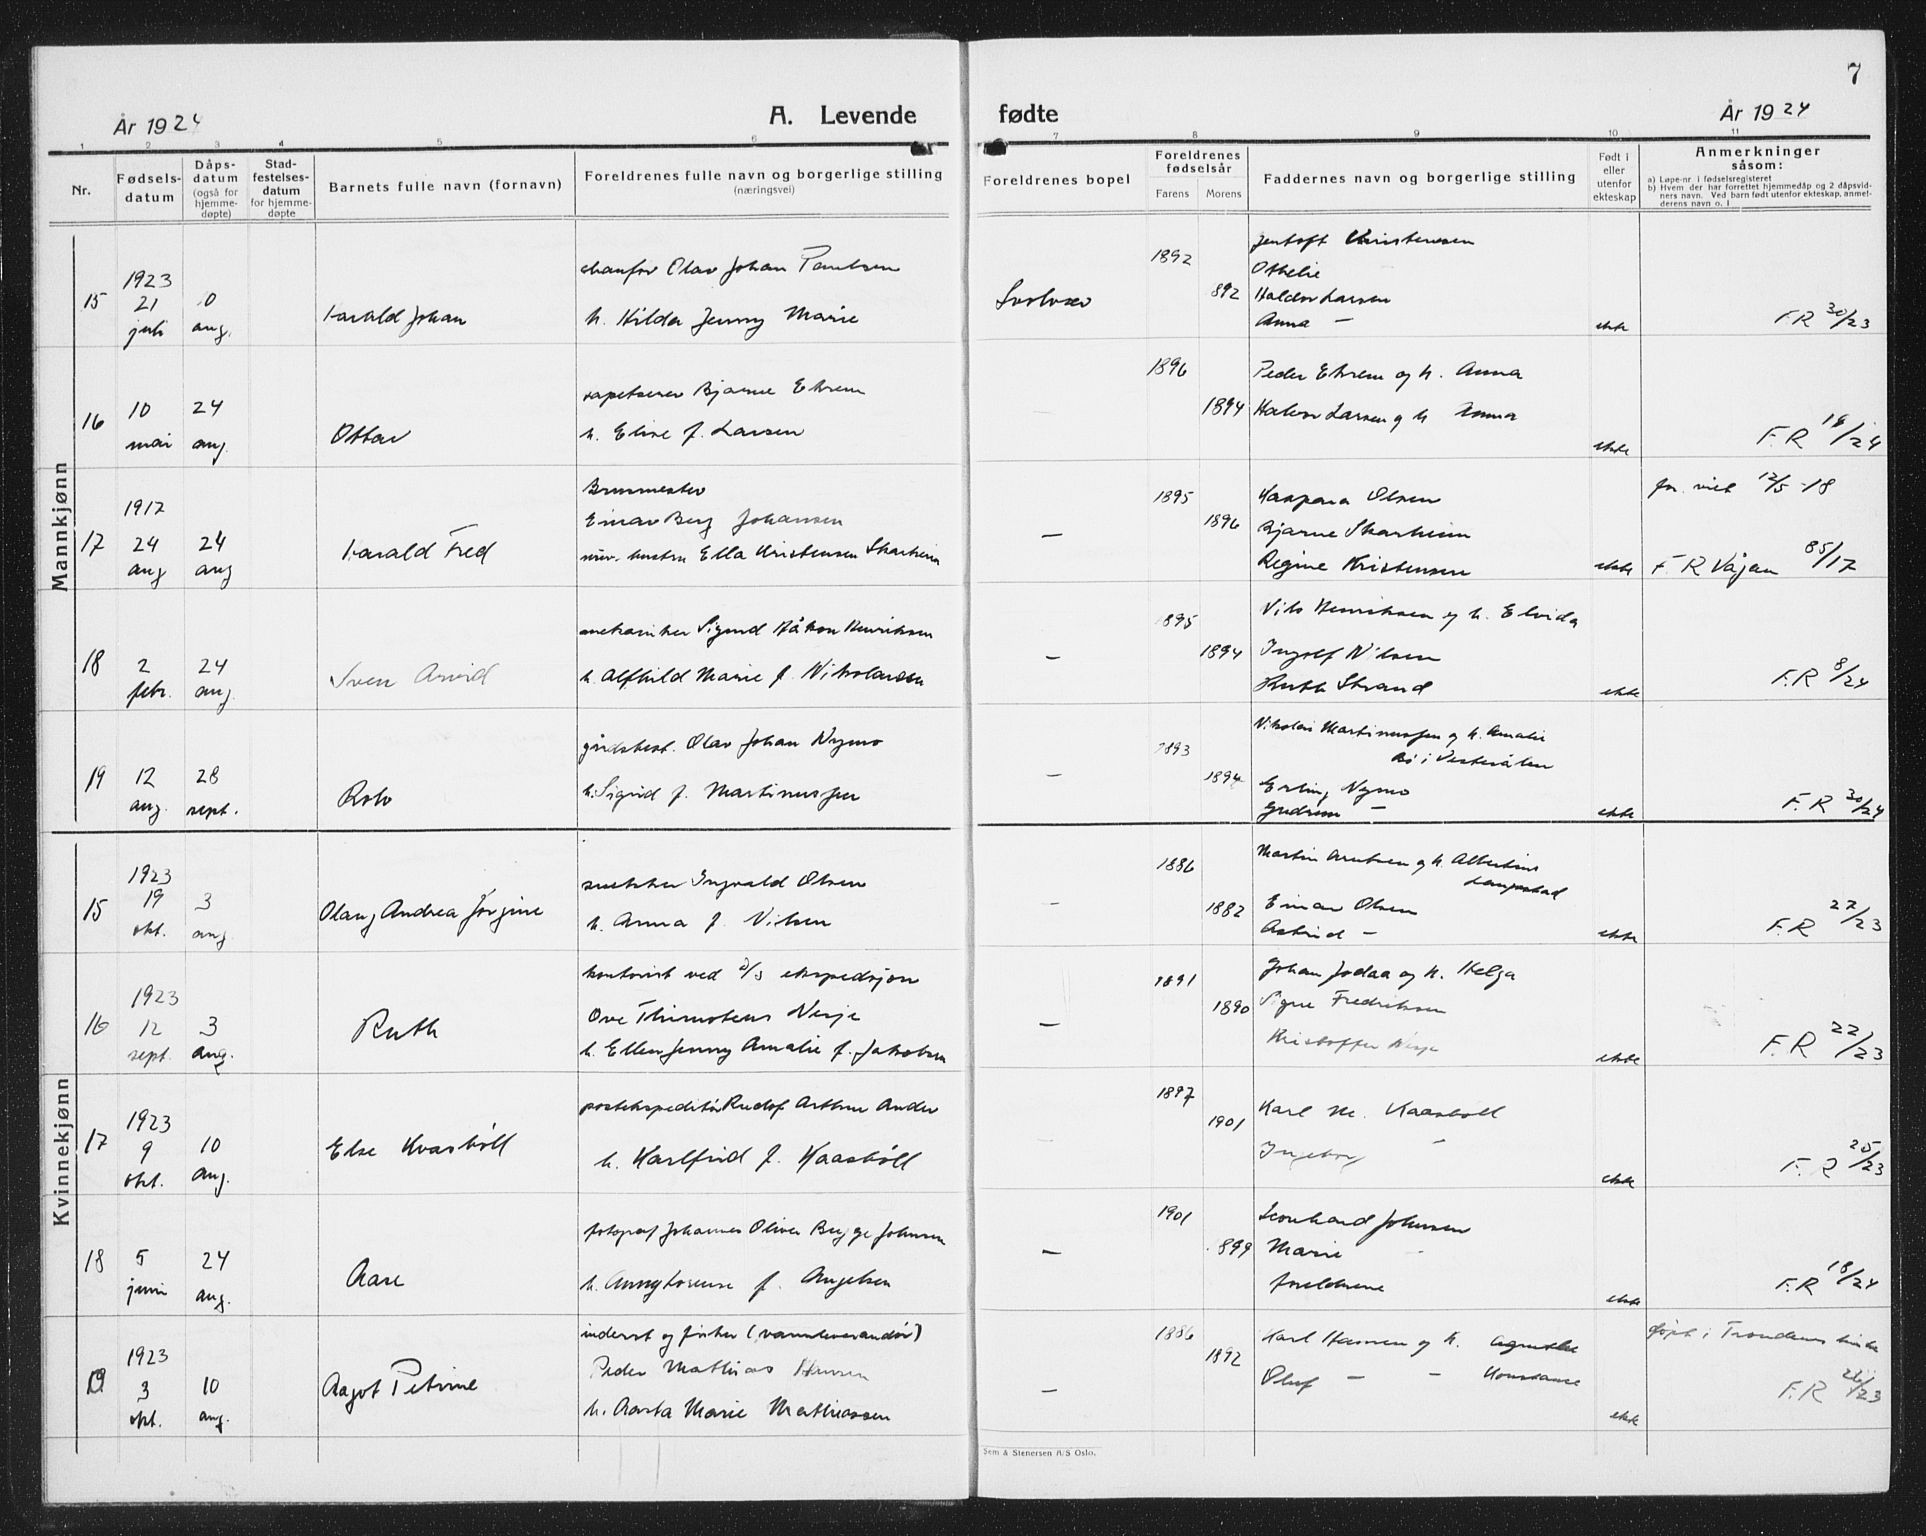 År 1924
A. Levende
fødte
År 1924
7
1 2 3 4 5 6 7 8 9 10 11
Nr.
Fødsels-
datum
Dåps-
datum
(også for
hjemme-
døpte)
Stad-
festelses-
datum
for hjemme-
døpte
Barnets fulle navn (fornavn)
Foreldrenes fulle navn og borgerlige stilling
(næringsvei)
Foreldrenes bopel
Foreldrenes
fødselsår
Farens Morens
Faddernes navn og borgerlige stilling
Født i
eller
utenfor
ekteskap
Anmerkninger
såsom:
a) Løpe-nr. i fødselsregisteret
b) Hvem der har forrettet hjemmedåp og 2 dåpsvid-
ners navn. Ved barn født utenfor ekteskap, anmel-
derens navn o. l
Mannkjønn
15
1923
21
juli
10
aug.
Harald Johan
chaufør Olav Johan Paulsen
h. Hilda Jenny Marie
Svolvær
1892
892
Jentoft Kristensen
Othelie
Haldor Larsen
Anna —
ekte
F.R 30/23
16
10
mai
24
aug.
Ottar
tapetserer Bjarne Ekrem
h. Elise f. Larsen
1896
1894
Peder Ekrem og h. Anna
Halvor Larsen og h Anna
ekte
F.R 18/24
17
1917
24
aug
24
aug
Harald Fred
Brunmester
Einar Berg Johansen
nuv. hustru Ella Kristensen Skarheim
—
1895
1896
Kaspara Olsen
Bjarne Skarheim
Regine Kristensen
ekte
for. viet 12/5-18
F R Vågan 85/17
18
2
febr.
24
aug.
Sven Arvid
mekaniker Sigurd Håkon Henriksen
h. Alfhild Marie f. Nikolaissen
—
1895
1894
Nils Henriksen og h. Elvida
Ingolf Nilsen
Ruth Strand
ekte
F.R 8/24
19
12
aug.
28
sept.
Rolv
gårdsbest. Olav Johan Nymo
h. Sigrid f. Martinussen
—
1893
1894
Nikolai Martinussen og h. Amalie
Bø i Vesterålen
Erling Nymo
Gudrun —
ekte
F.R 30/24
Kvinnekjønn
15
1923
19
okt.
3
aug.
Olaug Andrea Jørgine
snekker Ingvald Olsen
h. Anna f. Nilsen
—
1886
1882
Martin Arntsen og h Albertine
Einar Olsen
Astrid —
ekte
F.R 27/23
16
1923
12
sept.
3
aug.
Ruth
kontorist ved d/s ekspedisjon
Ove Thimoteus Nesje
h. Ellen Jenny Amalie f. Jakobsen
—
1891
1890
Johan Jodaa og h. Helga
Signe Fredriksen
Kristoffer Nesje
ekte
F.R 22/23
17
1923
9
okt.
10
aug.
Else Kvasbøll
postekspeditør Rudof Arthur Ander
h. Karlfrid f. Kaasbøll
1897
1901
Karl M. Kaasbøll
Ingeborg —
ekte
F.R 25/23
18
5
juni
24
aug.
Aase
fotograf Johannes Oliver Bugge Johnsen
h. Anny Lovense f. Angelsen
—
1901
899
Leonhard Johnsen
Marie —
foreldrene
ekte
F.R 18/24
19
1923
3
okt.
10
aug.
Aagot Petrine
inderst og fisker (vannleverandør)
Peder Mathias Hansen
h. Aasta Marie Mathiassen
—
1886
1892
Karl Hansen og h. Agnethe
Oluf — — Konstanse
ekte
døpt i Trondenes kirke
F.R 26/23
Sem & Stenersen A/S Oslo.